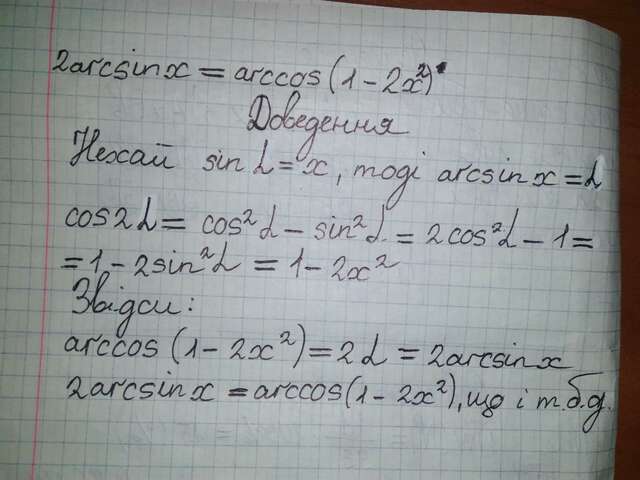 2arcsin x = arccos (1 - 2x²)
Доведення
Нехай sin α = x, тоді arcsin x = α
cos 2α = cos²α - sin²α = 2cos²α - 1 =
= 1 - 2sin²α = 1 - 2x²
Звідси:
arccos (1 - 2x²) = 2α = 2arcsin x
2arcsin x = arccos(1 - 2x²), що і т.б.д.